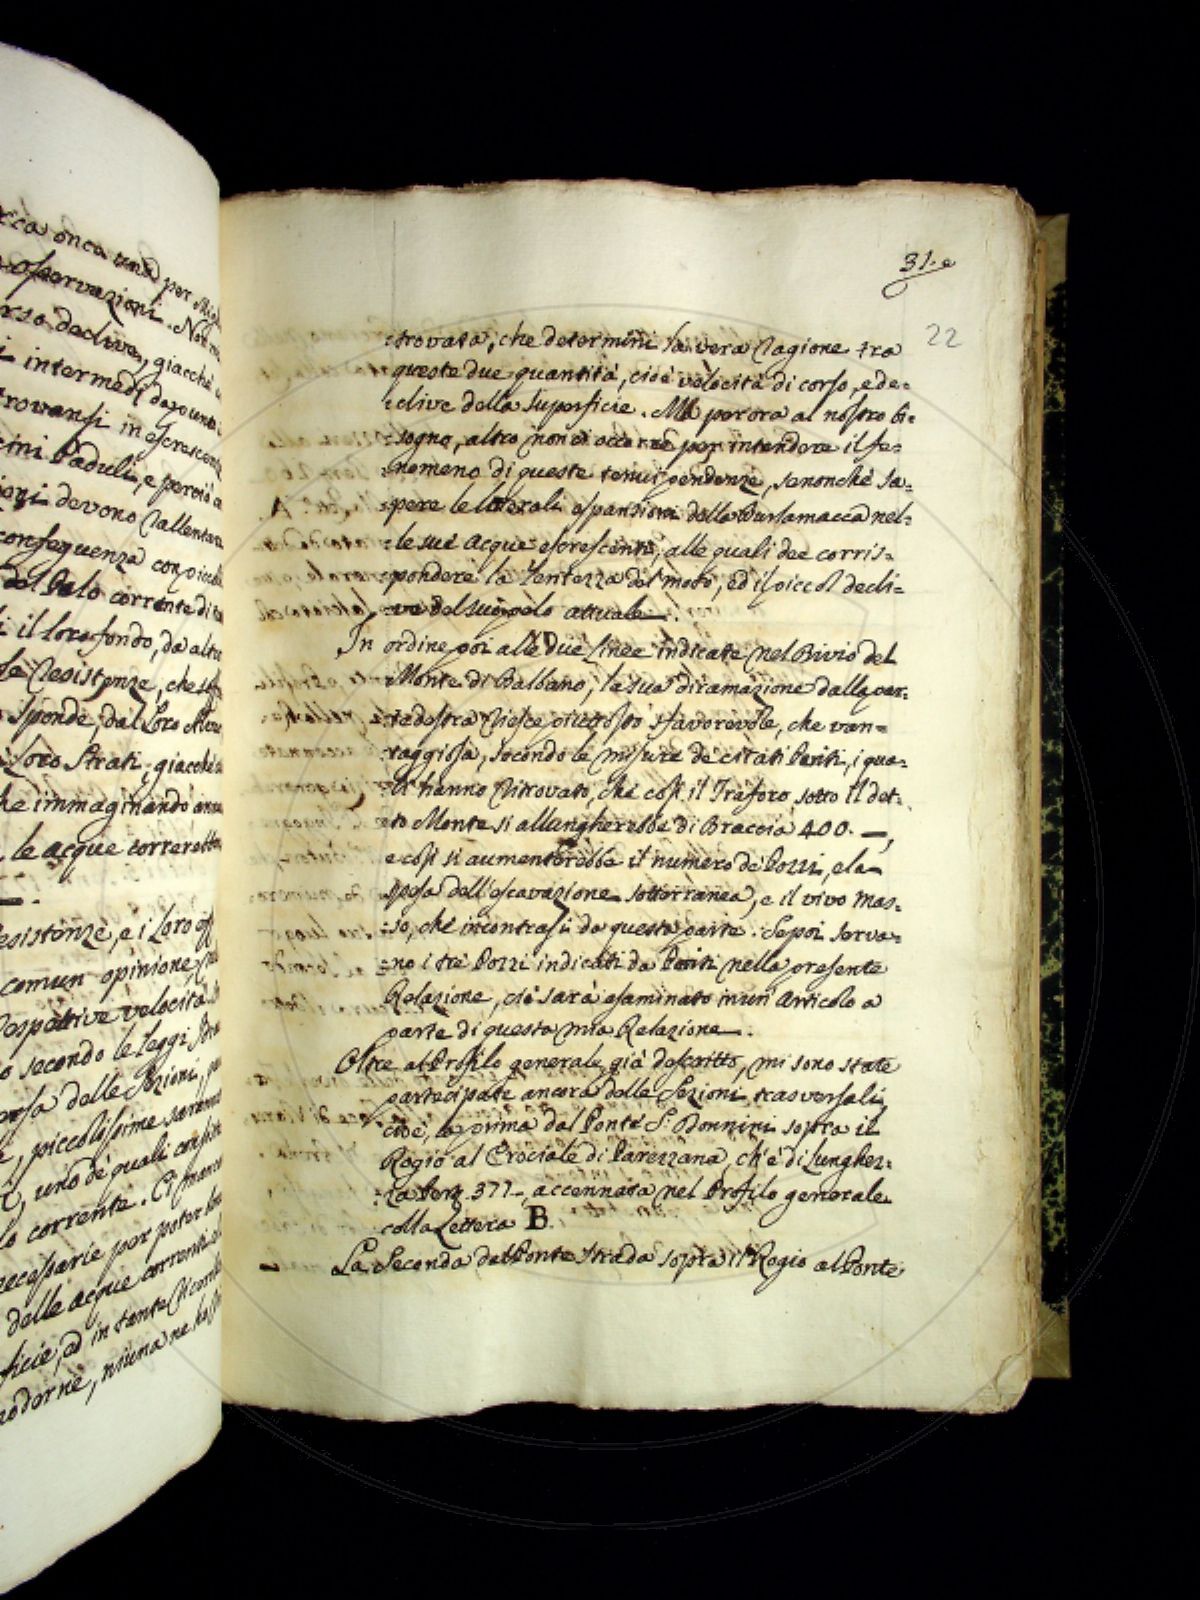 cca onca una per Migl
osservazioni. Non
rso declive, giacchè
intermedi da
trovansi in escrescen
cini Paduli, e perciò
devono rallentar
conseguenza con piccol
del Pelo corrente di
il loro fondo, da altr
le resistenze, che
sponde, dal Loro Alveo
Loro Strati, giacchè
che immaginando
le acque correrebbe
resistenze, e i Loro eff
comun opinione,
respettive velocità
o secondo le Leggi
delle Sezioni,
piccolissime saranno
uno de quali consiste
lo corrente. Ci manca
necessarie per poter
delle acque correnti
ficie, ed in tante
moderne, niuna ne ha
31.e
22
:trovata, che determini la vera ragione tra
queste due quantità, cioè velocità di corso, e de:
:clive della superficie. Ma per ora al nostro bi:
:sogno, altro non ci occorre per intendere il fe:
:nomeno di queste tenui pendenze, senonchè sa:
:pere le laterali espansioni della Burlamacca nel:
:le sue Acque escrescenti, alle quali dee corris:
:pondere la lentezza del moto, ed il piccol decli:
:ve del suo pelo attuale.
In ordine poi alle due linee indicate nel Bivio del
Monte di Balbano, la sua diramazione dalla par:
:te destra riesce piuttosto sfavorevole, che van:
:taggiosa, secondo le misure de citati Periti, i qua:
:li hanno ritrovato, che così il Traforo sotto il det:
:to Monte si allungherebbe di Braccia 400. —,
e così si aumenterebbe il numero de Pozzi, e la
spesa dell'escavazione sotterranea, e il vivo mas:
:so, che incontrasi da questa parte. Se poi serva:
:no i tre Pozzi indicati da Periti nella presente
Relazione, ciò sarà esaminato in un Articolo a
parte di questa mia Relazione.
Oltre al Profilo generale già descritto, mi sono state
partecipate ancora delle Sezioni trasversali,
cioè, la prima dal Ponte S. Donnini sopra il
Rogio al Crociale di Parezzana, ch'è di Lunghez:
:za Pert. 377., accennata nel Profilo generale
colla Lettera B.
La Seconda dal Ponte Strada sopra il Rogio al Ponte